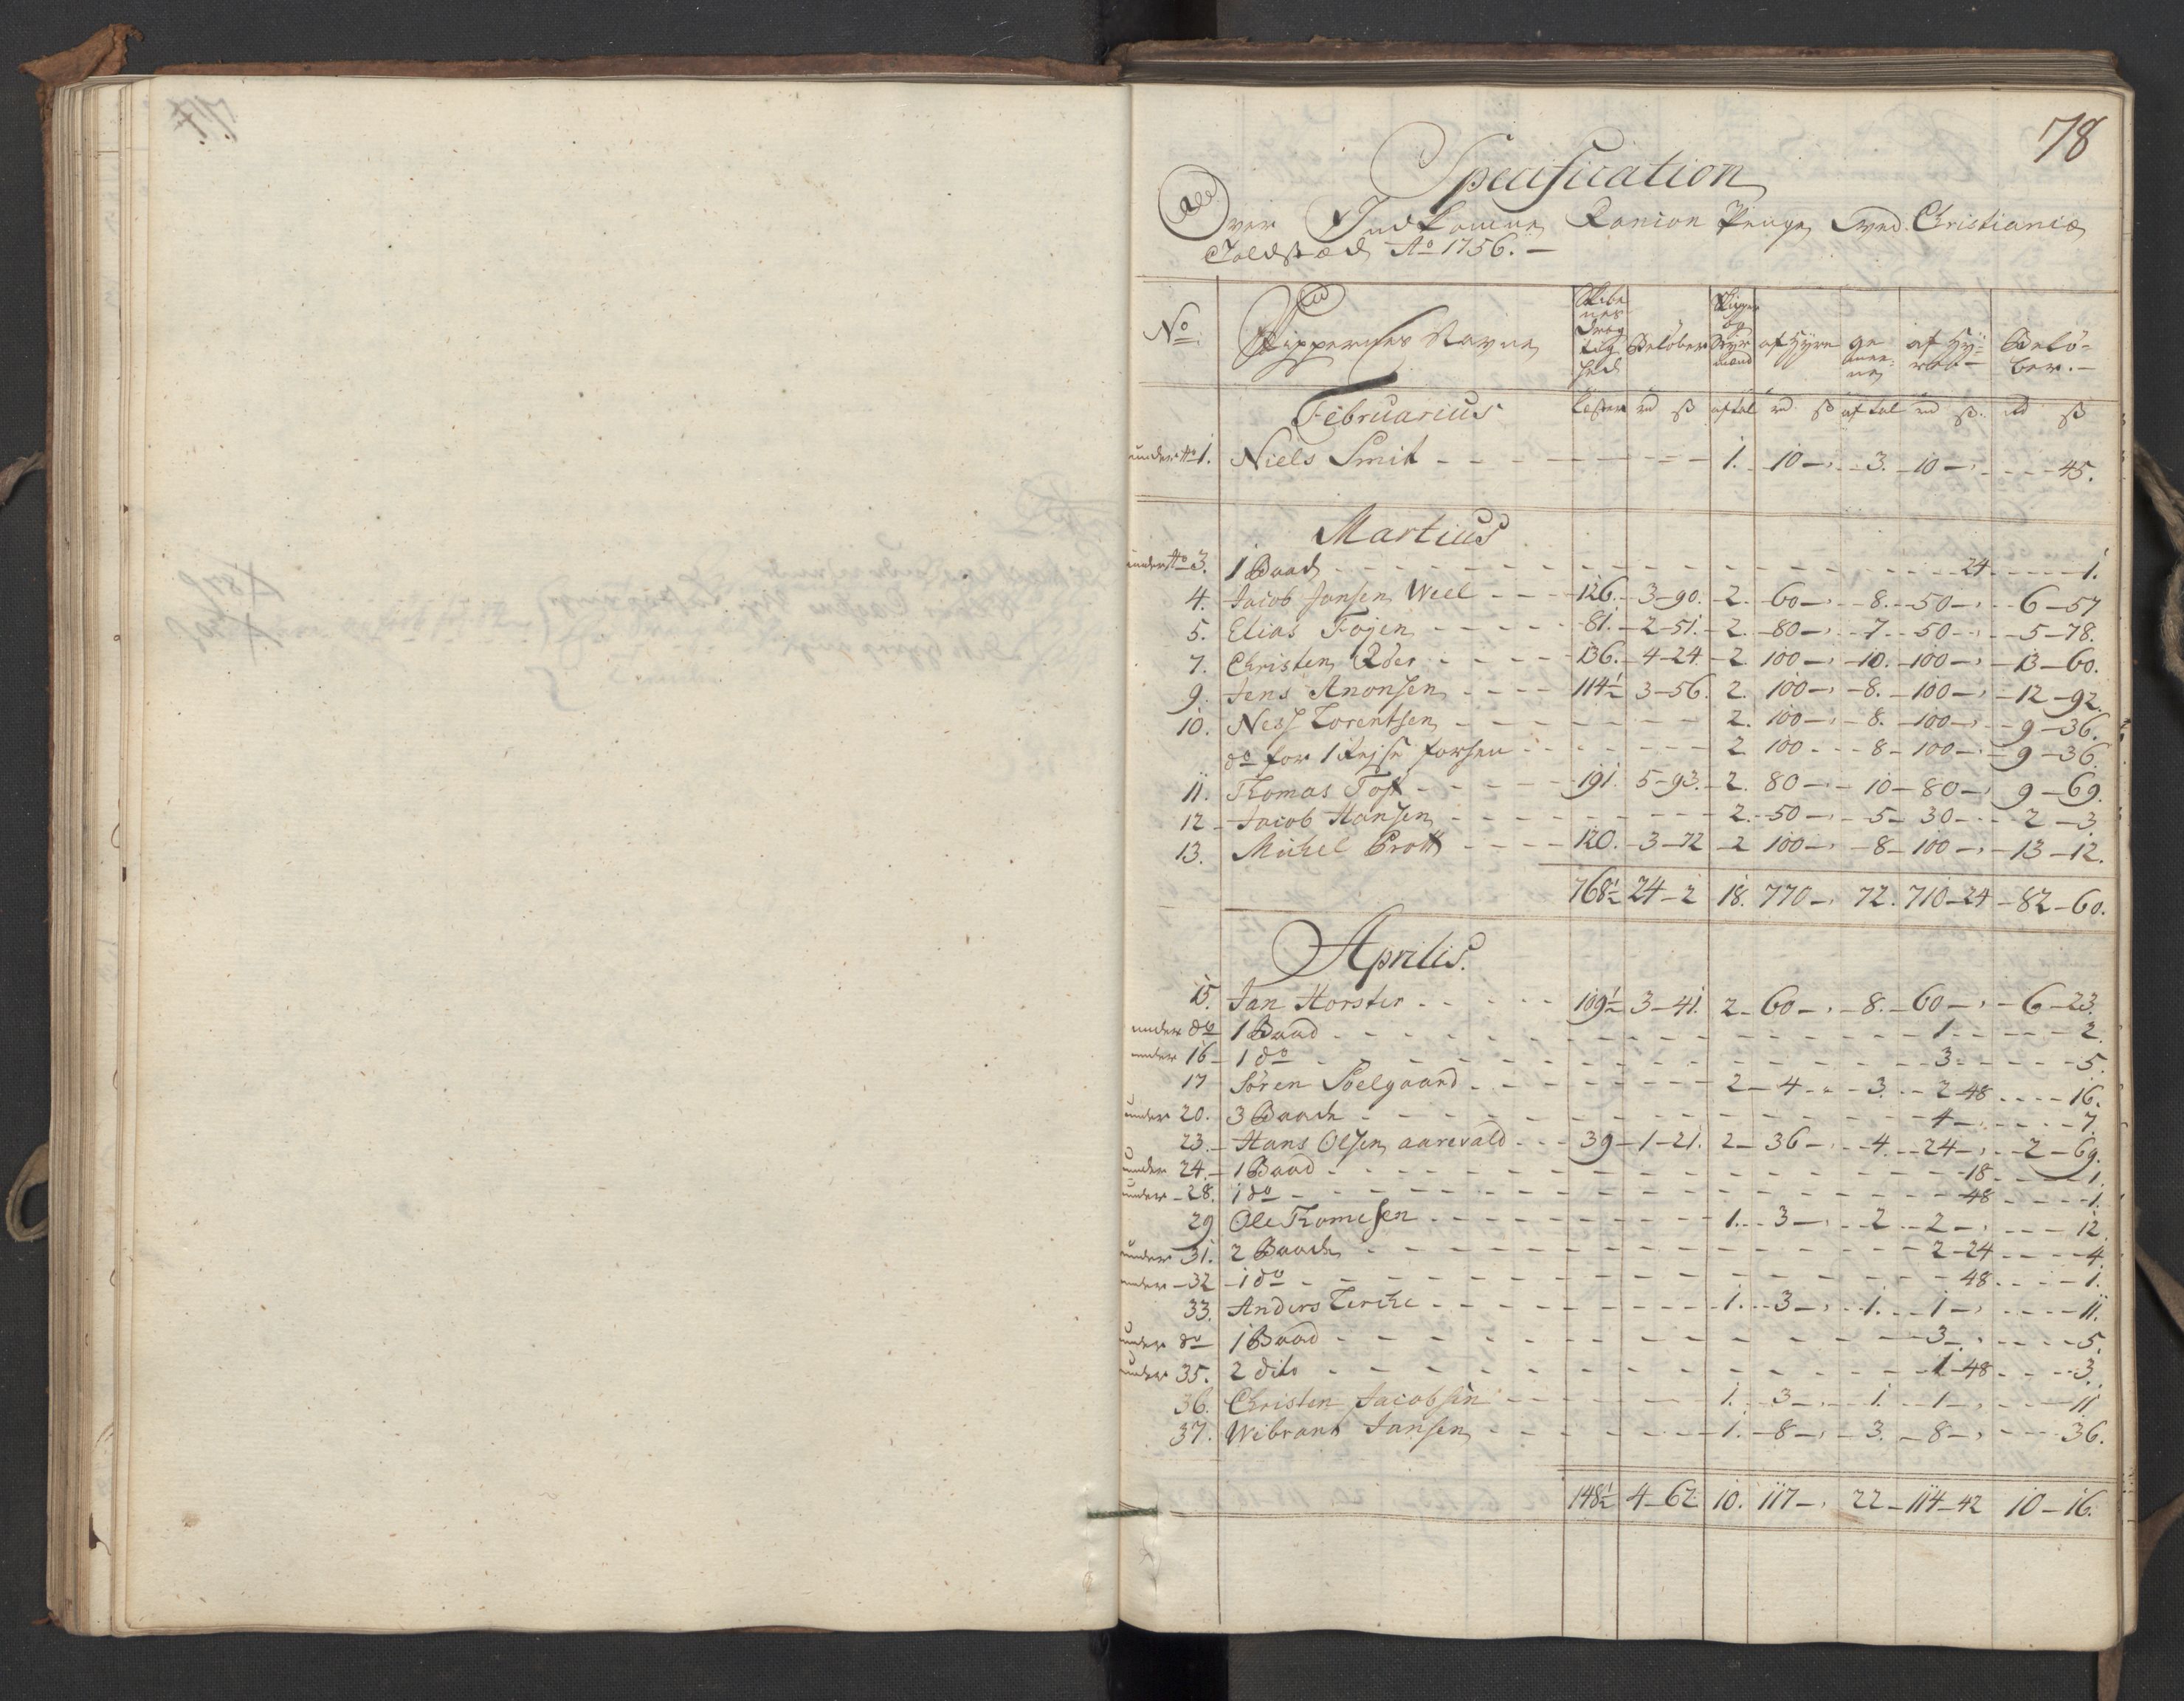 78
Specification
Over Indkomne Rancion Penge ved Christiania
Toldsted Ao 1756. —
No. Skippernes Navne Skibenes Drægtighed Beløber Skipper og Styrmænd af Hyre gemeene af Hyren Beløber. —
Februarius Læster rd ß aftal rd ß aftal rd ß rd ß
under No 1. Niels Smit 1. 10 — 3. 10 — 45.
Martius
under No 3. 1 Baad 24 1.
4. Jacob Jansen Weel 126. 3-90. 2. 60 — 8. 50 — 6-57
5. Elias Fojen 81. 2-51. 2. 80 — 7. 50 — 5-78.
7. Christen Öder 136. 4-24. 2 100 — 10. 100 — 13-60.
9. Jens Anonsen 114½ 3-56. 2. 100 — 8. 100 — 12-92.
10. Ness Lorentsen 2. 100 — 8. 100 — 9-36.
do for 1 Rejse forhen 2 100 8 100 — 9-36.
11. Thomas Toft 191. 5-93. 2. 80 — 10 80 — 9-69.
12 Jacob Hansen 2. 50 — 5 30 2-3
13. Michel Brott 120. 3-72 2 100 — 8 100 — 13-12.
768½ 24-2 18. 770 — 72. 710-24 82-60.
Aprilis.
15. Jan Horster 109½ 3-41. 2 60 — 8. 60 — 6-23.
under do 1 Baad 1 2.
under 16 1 do 3 5.
17 Sören Soelgaard 2 4 3. 2-48 16.
under 20. 3 Baade 4 7.
23. Hans Olsen aarevald 39 1-21. 2 36 — 4. 24 — 2-69.
under 24. 1 Baad 18 1.
under 28. 1 do 48 1.
29 Ole Thomesen 1. 3 — 2 2 — 12
under 31. 2 Baade 2-24 4.
under 32 1 do 48 1.
33. Anders Lerche 1. 3 — 1. 1 — 11.
under do 1 Baad 3 5.
under 35. 2 dito 1-48 3.
36. Christen Jacobsen 1. 3 — 1. 1 — 11
37. Wibrant Jansen 1. 8 — 3. 8 — 36.
148½ 4-62 10. 117 — 22 114-42 10-16.